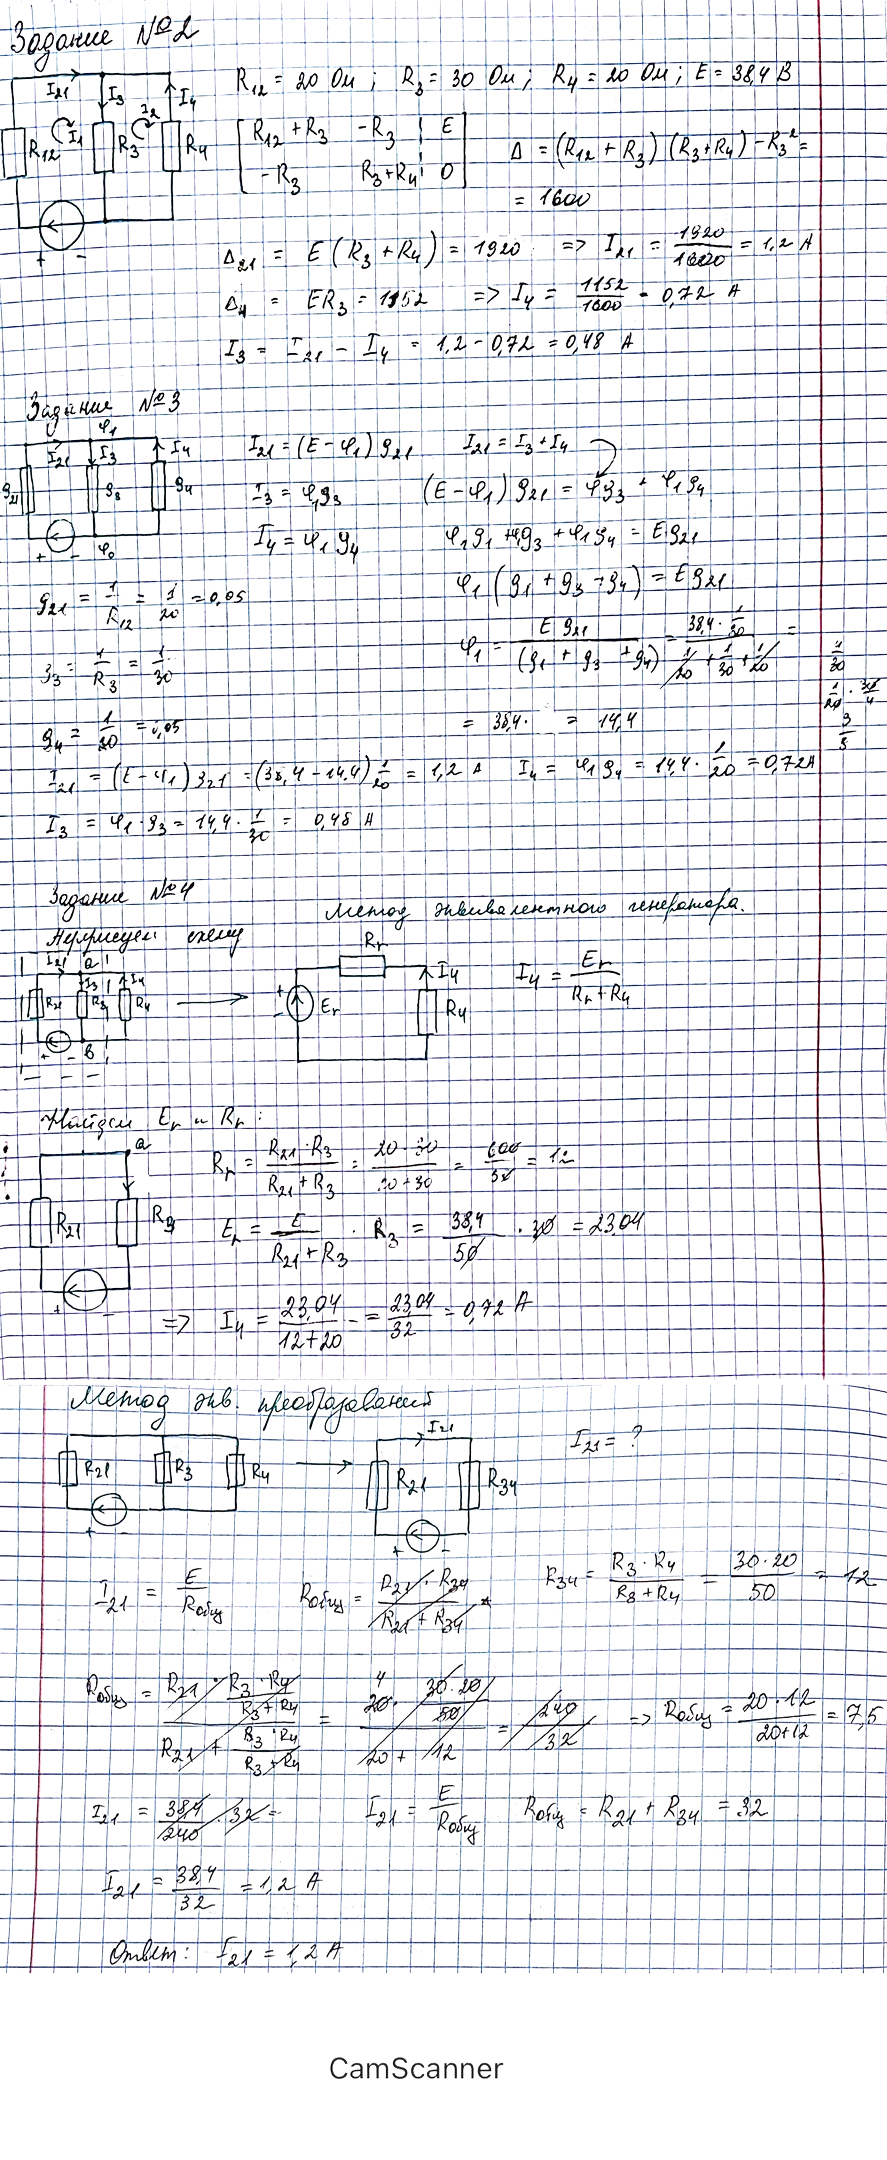 Задание №2
R12 = 20 Ом ; R3 = 30 Ом ; R4 = 20 Ом ; E = 38,4 В
I21 I3 I2 I4
R12 I1 R3 R4
R12 + R3 -R3 E
-R3 R3+R4 0
Δ = (R12 + R3) (R3+R4) - R3² =
= 1600
+ -
Δ21 = E (R3 + R4) = 1920 => I21 = 1920/1600 = 1,2 А
Δ4 = ER3 = 1152 => I4 = 1152/1600 = 0,72 А
I3 = I21 - I4 = 1,2 - 0,72 = 0,48 А
Задание №3
φ1
I21 I3 I4
g21 g3 g4
+ - φ0
I21 = (E - φ1) g21 I21 = I3 + I4
I3 = φ1g3 (E-φ1) g21 = φg3 + φ1g4
I4 = φ1 g4 φ1g1 + φg3 + φ1g4 = Eg21
φ1 (g1 + g3 + g4) = Eg21
g21 = 1/R12 = 1/20 = 0,05
φ1 = E g21/(g1 + g3 + g4) = 38,4 · 1/30 / 1/20 + 1/30 + 1/20 =
g3 = 1/R3 = 1/30
g4 = 1/20 = 0,05
= 38,4 · = 14,4
I21 = (E - φ1) g21 = (38,4 - 14,4) 1/20 = 1,2 А I4 = φ1g4 = 14,4 · 1/20 = 0,72А
I3 = φ1 · g3 = 14,4 · 1/30 = 0,48 А
Задание №4
Метод эквивалентного генератора.
Нарисуем схему
I21 a I3 I4
R21 R3 R4
+ - в
Rг
+ - Eг I4 R4
I4 = Eг/Rг + R4
Найдем Eг и Rг :
a
R21 R3
+ -
Rг = R21 · R3/R21 + R3 = 20 · 30/20 + 30 = 600/50 = 12
Eг = E/R21 + R3 · R3 = 38,4/50 · 30 = 23,04
=> I4 = 23,04/12+20 = 23,04/32 = 0,72 А
Метод экв. преобразований
R21 R3 R4
+ -
I21
R21 R34
+ -
I21 = ?
I21 = E/Rобщ Rобщ = R21 · R34/R21 + R34 R34 = R3 · R4/R3 + R4 = 30·20/50 = 12
Rобщ = R21 · R3 · R4/R3 + R4 / R21 + R3 · R4/R3 + R4 = 20 · 30·20/50 / 20 + 12 = 240/32 => Rобщ = 20 · 12/20+12 = 7,5
I21 = 38,4/240 · 32 = I21 = E/Rобщ Rобщ = R21 + R34 = 32
I21 = 38,4/32 = 1,2 А
Ответ: I21 = 1,2 А
CamScanner